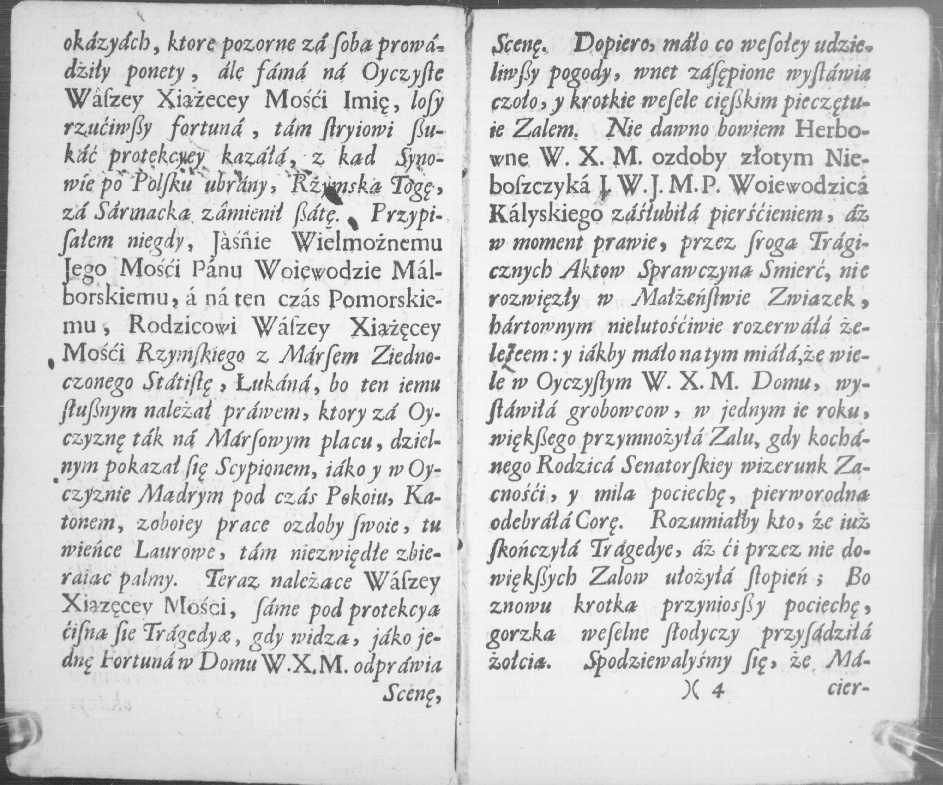 okázyách, ktore pozorne zá ſoba prowá-
dźiły ponety, ále fámá ná Oyczyſte
Wáſzey Xiażecey Mośći Imię, loſy
rzućiwſßy fortuná, tám ſtryiowi ßu-
káć protekcyey kazáłá, z kad Syno-
wie po Polſku ubrány, Rźymska Togę,
zá Sármacka zámienił ßátę. Przypi-
ſałem niegdy, Jáśńie Wielmożnemu
Jego Mośći Pánu Woiewodzie Mál-
borskiemu, á ná ten czás Pomorskie-
mu, Rodzicowi Wáſzey Xiażęcey
Mośći Rzymſkiego z Márſem Ziedno-
czonego Státiſtę, Łukáná, bo ten iemu
ſłußnym należał práwem, ktory zá Oy-
czyznę ták ná Márſowym placu, dziel-
nym pokazał ſię Scypionem, iáko y w Oy-
czyznie Madrym pod czás Pokoiu, Ka-
tonem, zoboiey prace ozdoby ſwoie, tu
wieńce Laurowe, tám niezwiędłe zbie-
raiac palmy. Teraz należace Wáſzey
Xiażęcey Mośći, ſáme pod protekcya
ćiſna ſie Trágedyæ, gdy widza, jáko je-
dnę Fortuná w Domu W.X.M. odpráwia
Scenę,
Scenę. Dopiero, máło co weſołey udzie-
liwßy pogody, wnet záſępione wyſtáwia
czoło, y krotkie weſele ciężkim pieczętu-
ie Zalem. Nie dawno bowiem Herbo-
wne W. X. M. ozdoby złotym Nie-
boſzczyká J. W. J. M. P. Woiewodzicá
Kályskiego záśłubiłá pierśćieniem, áż
w moment prawie, przez ſroga Trági-
cznych Aktow Sprawczyna Smierć, nie
rozwięzły w Małżeńſtwie Zwiazek,
hártownym nielutośćiwie rozerwáłá że-
leźcem: y iákby máło na tym miáłá, że wie-
le w Oyczyſtym W. X. M. Domu, wy-
ſtáwiłá grobowcow, w jednym ie roku,
więkßego przymnożyłá Zalu, gdy kochá-
nego Rodzicá Senatorſkiey wizerunk Za-
cnośći, y miła pociechę, pierworodna
odebráłá Corę. Rozumiałby kto, że iuż
ſkończyłá Trágedye, áż ći przez nie do-
więkßych Zalow ułożyłá ſtopień; Bo
znowu krotka przyniosßy pociechę,
gorzka weſelne ſłodyczy przyſádziłá
żołcia. Spodziewalyśmy ſię, że Má-
)( 4 cier-